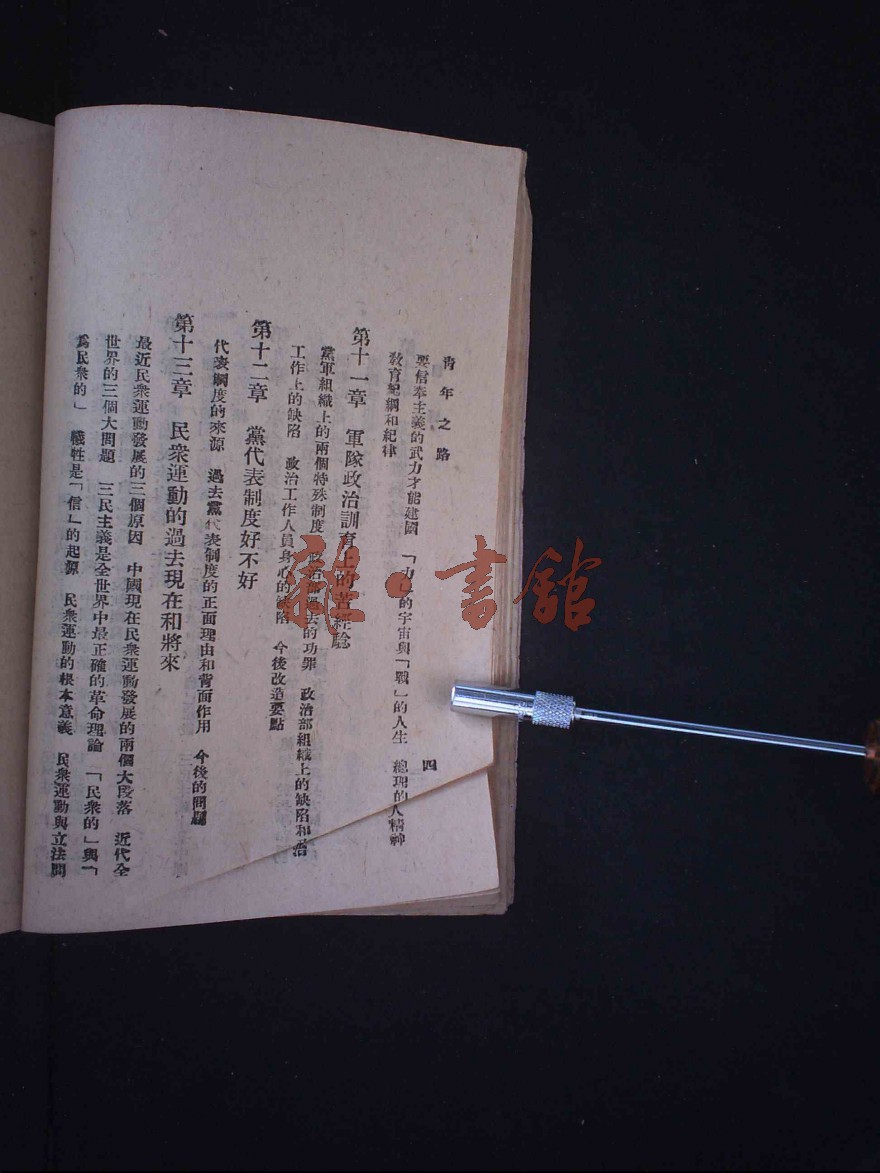 青年之路
四
要信奉主義的武力才能建國 「力」的宇宙與「戰」的人生 總理的人精神
教育紀綱和紀律
第十一章 軍隊政治訓育上的苦經驗
黨軍組織上的兩個特殊制度 政治部過去的功罪 政治部組織上的缺陷和政治
工作上的缺陷 政治工作人員身心的缺陷 今後改造要點
第十二章 黨代表制度好不好
代表制度的來源 過去黨代表制度的正面理由和背面作用 今後的問題
第十三章 民衆運動的過去現在和將來
最近民衆運動發展的三個原因 中國現在民衆運動發展的兩個大段落 近代全
世界的三個大問題 三民主義是全世界中最正確的革命理論 「民衆的」與「
爲民衆的」 犧牲是「信」的起源 民衆運動的根本意義 民衆運動與立法問
龍·書館